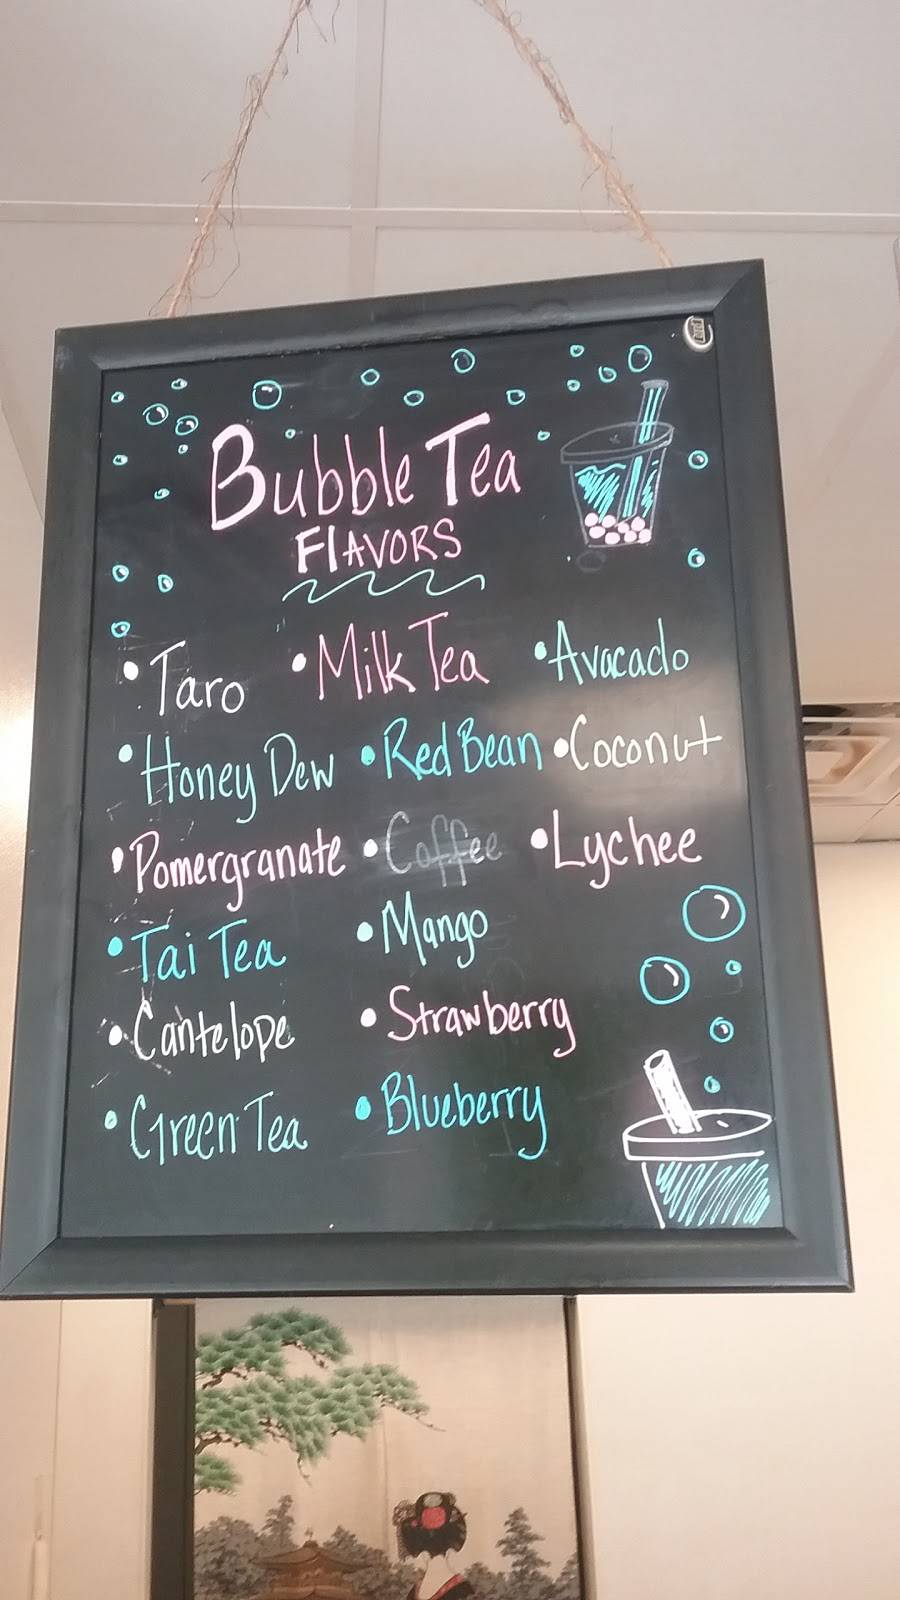 Bubble Tea
FlAVORS
• Taro • Milk Tea • Avacado
• Honey Dew • Red Bean • Coconut
• Pomergranate • Coffee • Lychee
• Tai Tea • Mango
• Cantelope • Strawberry
• Green Tea • Blueberry